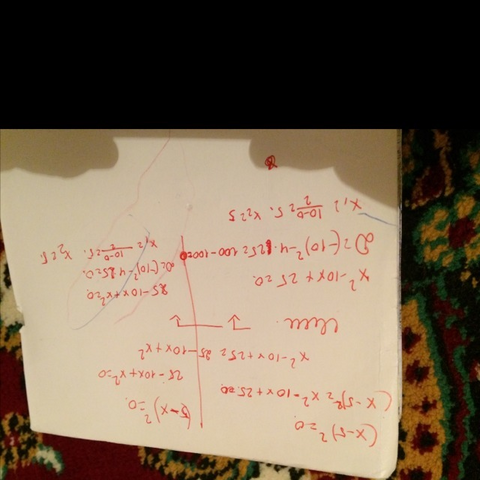 (x-5)²=0.
(x-5)²= x²-10x+25=0.
x²-10x+25= 25-10x+x²
x²-10x+25=0.
D=(-10)²-4·1·25=100-100=0
x₁= 10-0/2 =5. x₂=5
(5-x)²=0.
25-10x+x²=0
25-10x+x²=0.
D=(-10)²-4·25=0.
x₁= 10-0/2 =5. x₂=5.